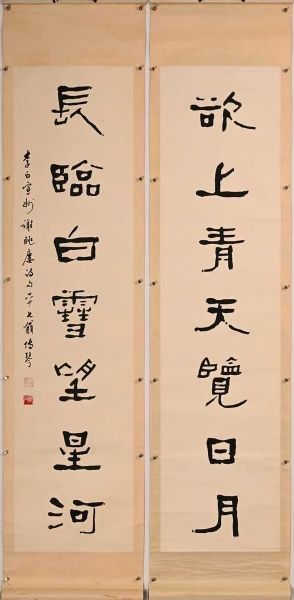 欲上青天覽日月
長臨白雲望星河
李白宣州謝朓廔